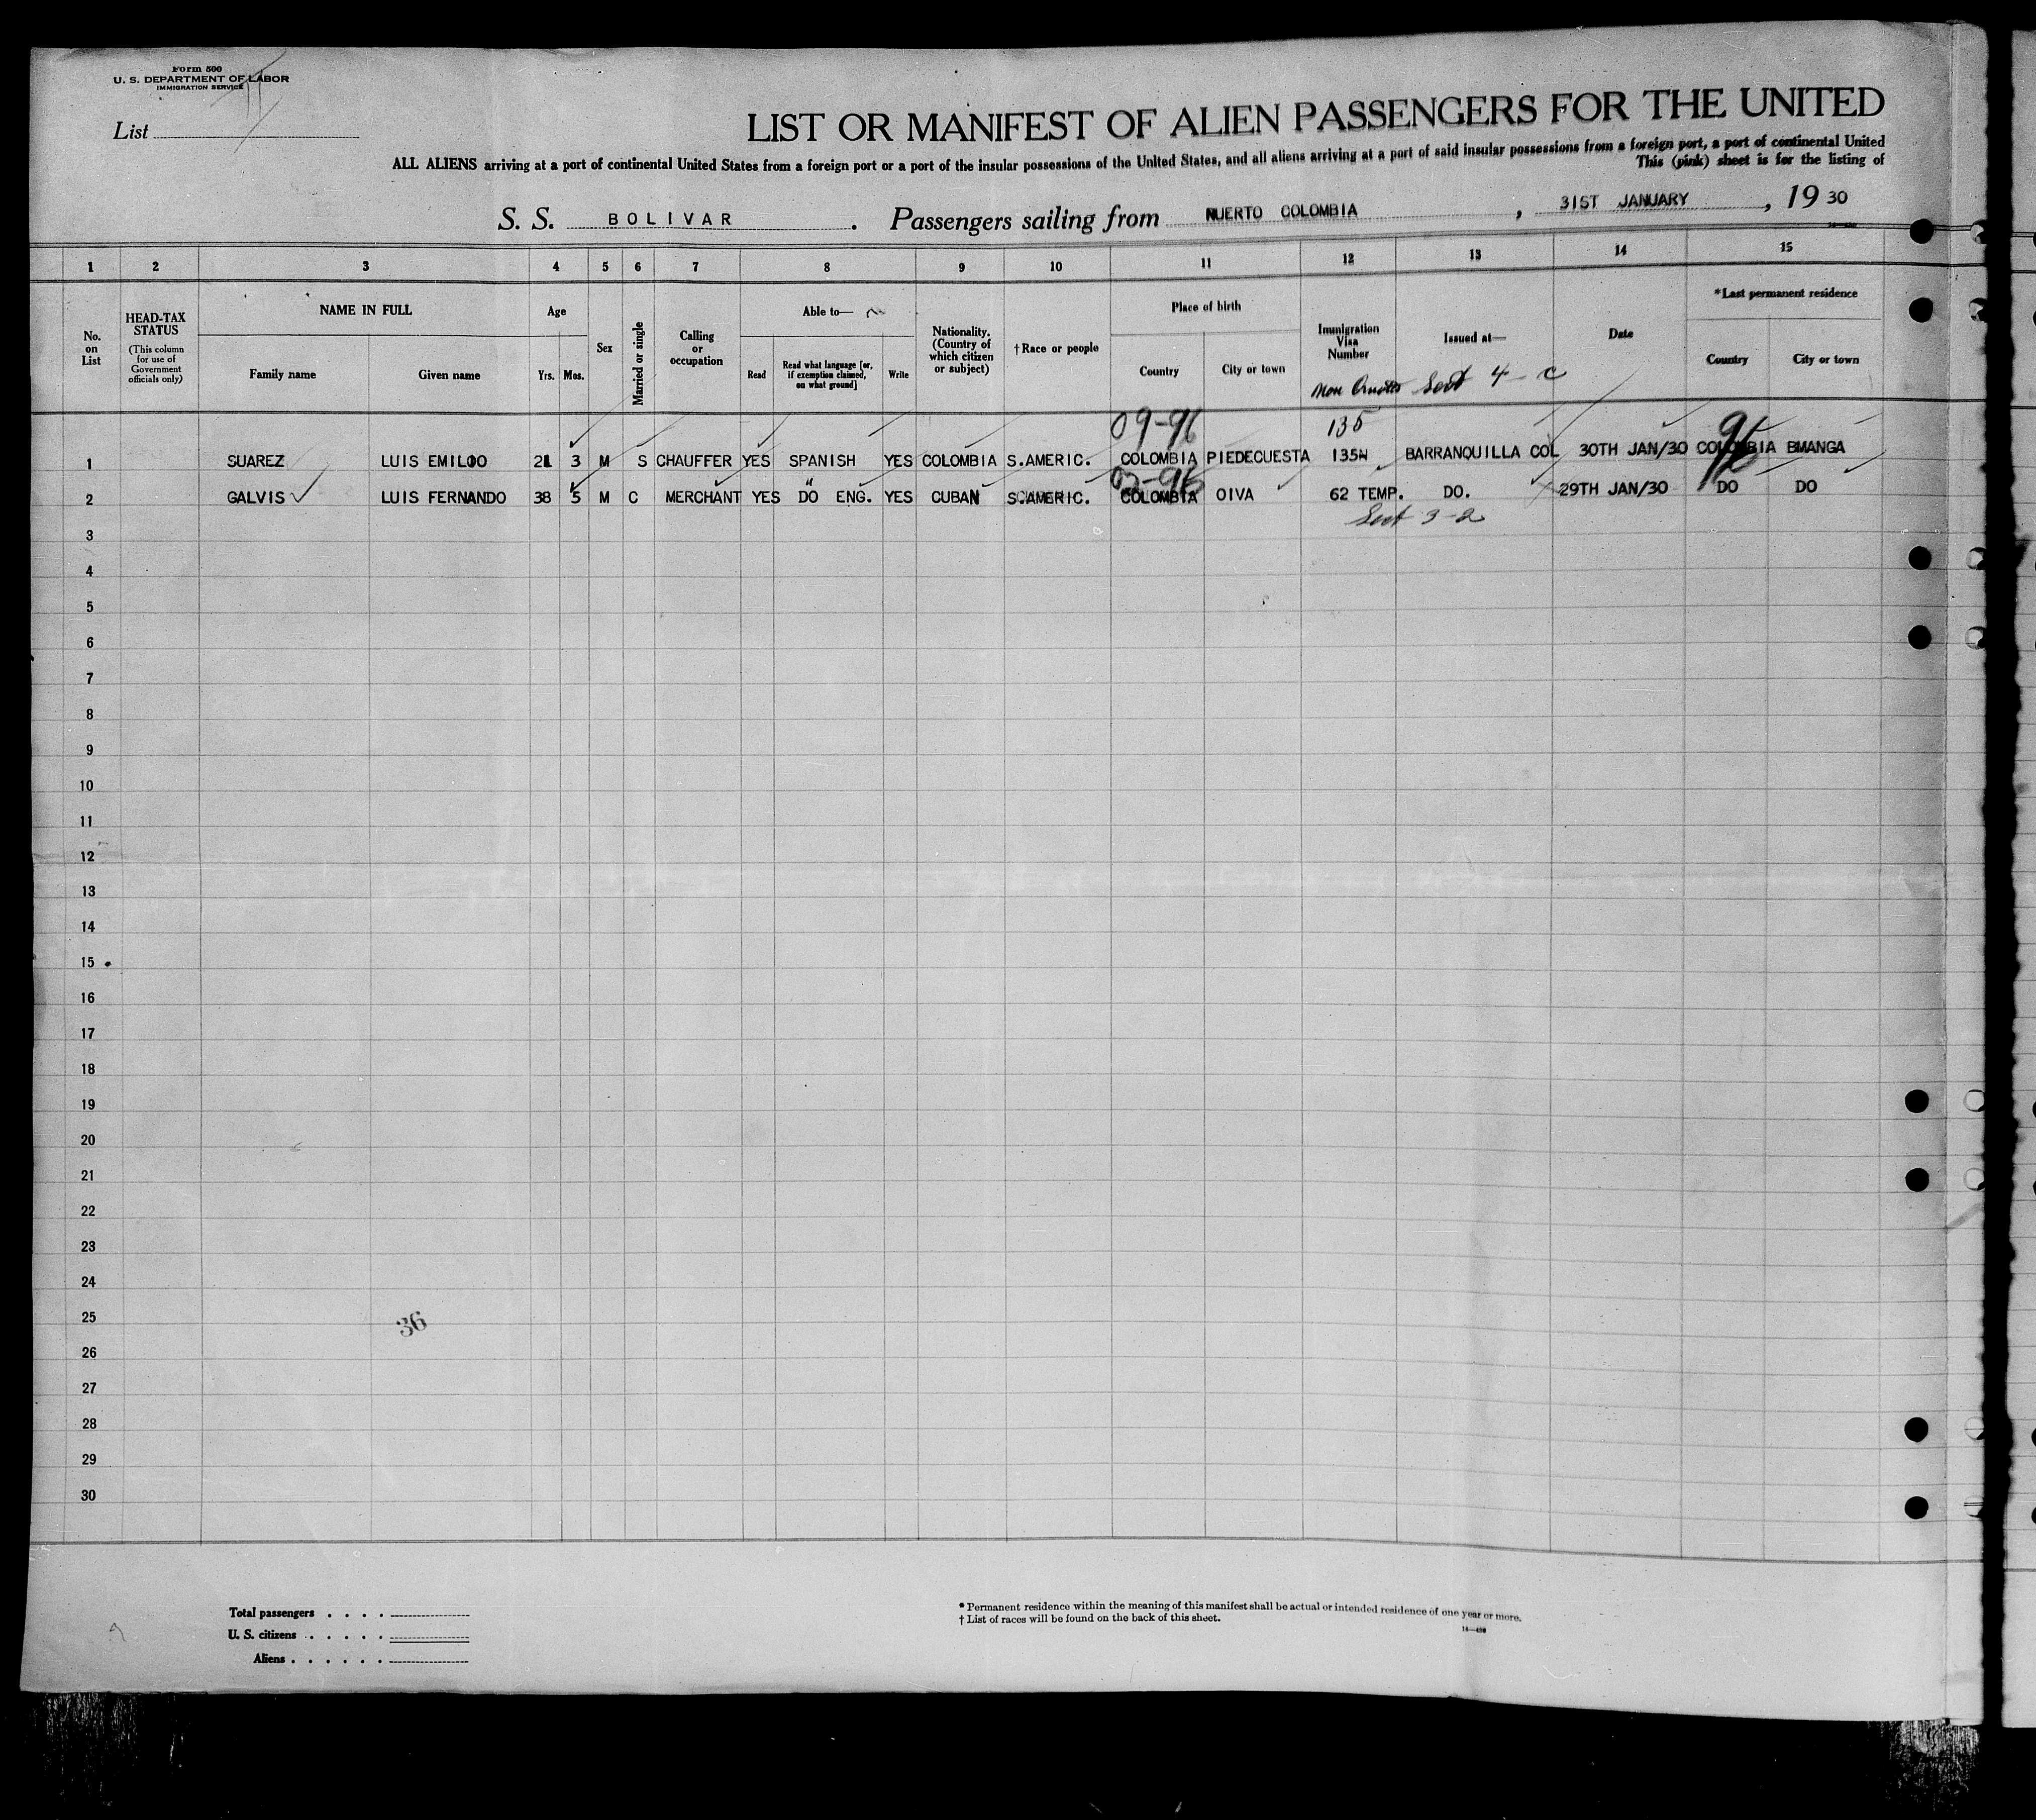 Form 500
U. S. DEPARTMENT OF LABOR
IMMIGRATION SERVICE
List
LIST OR MANIFEST OF ALIEN PASSENGERS FOR THE UNITED
ALL ALIENS arriving at a port of continental United States from a foreign port or a port of the insular possessions of the United States, and all aliens arriving at a port of said insular possessions from a foreign port, a port of continental United
This (pink) sheet is for the listing of
S. S. BOLIVAR. Passengers sailing from PUERTO COLOMBIA, 31ST JANUARY, 19 30
1 2 3 4 5 6 7 8 9 10 11 12 13 14 15
No. on List
HEAD-TAX STATUS
(This column for use of Government officials only)
NAME IN FULL
Family name
Given name
Age
Yrs. Mos.
Sex
Married or single
Calling or occupation
Able to—
Read
Read what language [or, if exemption claimed, on what ground]
Write
Nationality. (Country of which citizen or subject)
†Race or people
Place of birth
Country
City or town
Immigration Visa Number
Issued at—
Date
*Last permanent residence
Country
City or town
4 - c
09-96
135
96
1 SUAREZ LUIS EMILIO 21 3 M S CHAUFFER YES SPANISH YES COLOMBIA S.AMERIC. COLOMBIA PIEDECUESTA 135N BARRANQUILLA COL 30TH JAN/30 COLOMBIA BMANGA
02-96
2 GALVIS LUIS FERNANDO 38 5 M C MERCHANT YES DO ENG. YES CUBAN S.AMERIC. COLOMBIA OIVA 62 TEMP. DO. 29TH JAN/30 DO DO
Sect 3-2
3
4
5
6
7
8
9
10
11
12
13
14
15
16
17
18
19
20
21
22
23
24
25
36
26
27
28
29
30
Total passengers . . . .
U. S. citizens . . . . .
Aliens . . . . . .
* Permanent residence within the meaning of this manifest shall be actual or intended residence of one year or more.
† List of races will be found on the back of this sheet.